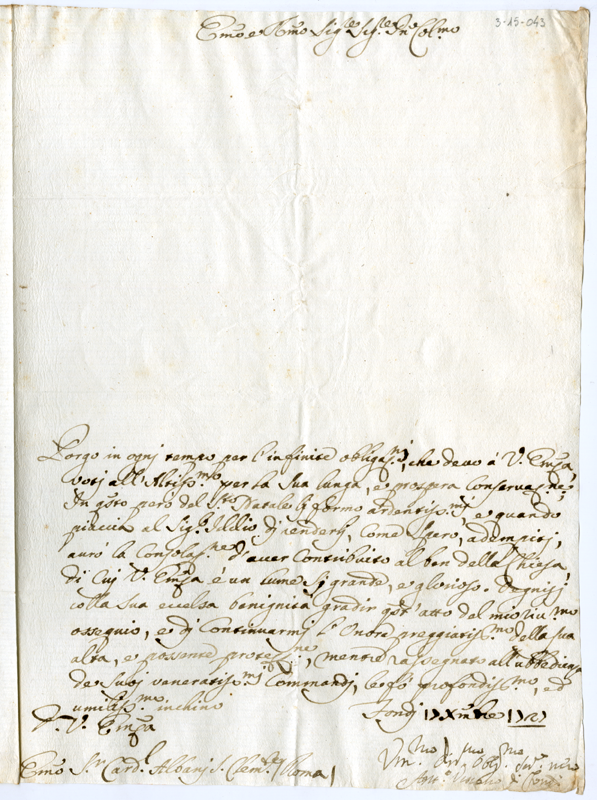 3-15-043
Em̃o e Rm̃o Sig.re Sig.re Pñ Col.mo
Porgo in ognj tempo per l'infinite obligaz.nj, che devo á V. Em̃za
votj all'Altiss.mo per la sua lunga, e prospera conservaz.ne;
In q̃sto però del S.to Natale li formo ardentiss.mj e quando
piaccia al Sig.e Iddio dj renderlj, come spero, adempitj,
avrò la consolaz.ne d'aver contribuito al ben della Chiesa
di cuj V. Em̃za é un lume sj grande, e glorioso. Degnisj
colla sua eccelsa benignità gradir q̃st'atto del mio riv.mo
ossequio, e dj continuarmj l'onore preggiatis.mo della sua
alta, e possente protez.ne, mentre rassegnato all'ubbedienza
de suoj veneratiss.mj commandj, le fò profondiss.mo, ed
umiliss.mo inchino
D. V. Em̃za
Fondj
Em̃o S.r Card.l Albanj S. Clem.te Roma